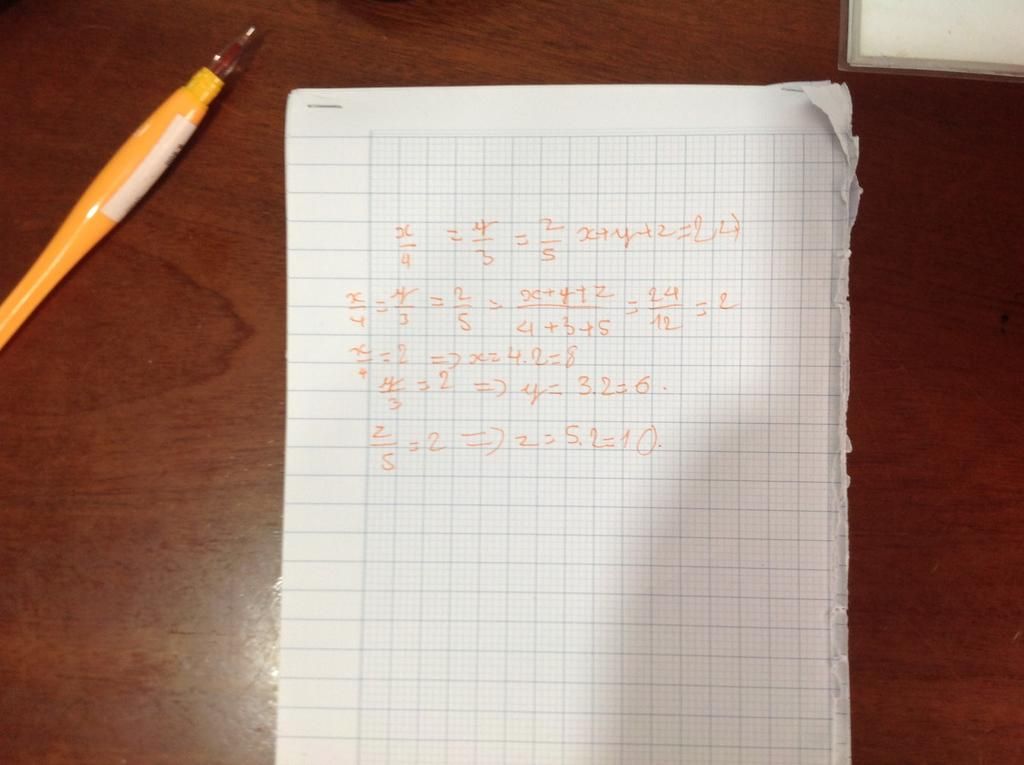 x/4 = y/3 = z/5 x+y+z=24
x/4 = y/3 = z/5 = (x+y+z)/(4+3+5) = 24/12 = 2
x/4 = 2 => x = 4.2 = 8
y/3 = 2 => y = 3.2 = 6.
z/5 = 2 => z = 5.2 = 10.